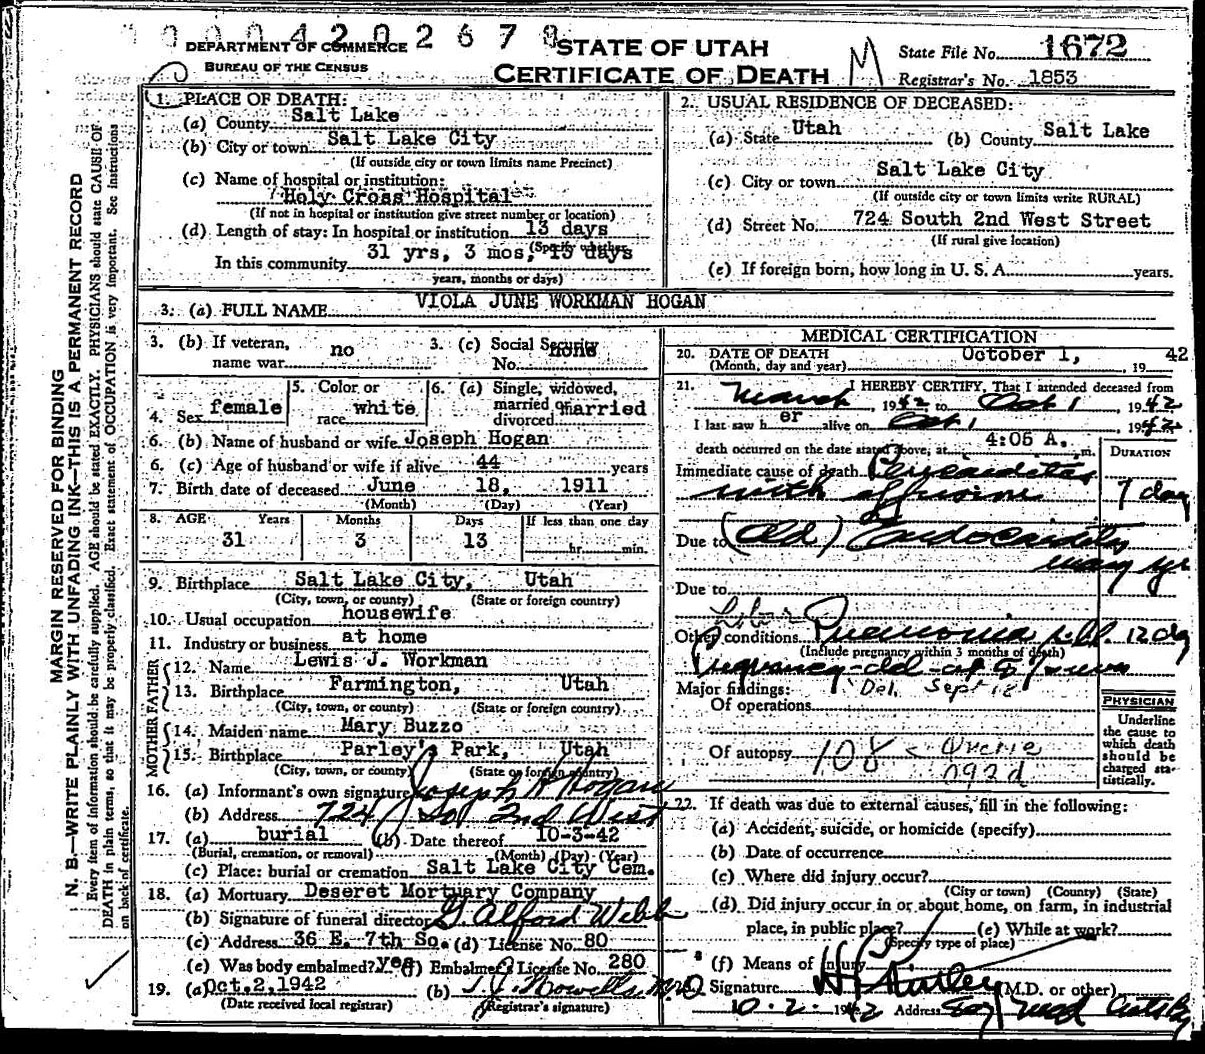 0004202678
DEPARTMENT OF COMMERCE
BUREAU OF THE CENSUS
STATE OF UTAH
CERTIFICATE OF DEATH
M
State File No. 1672
Registrar's No. 1853
MARGIN RESERVED FOR BINDING
N. B.—WRITE PLAINLY WITH UNFADING INK—THIS IS A PERMANENT RECORD
Every item of information should be carefully supplied. AGE should be stated EXACTLY. PHYSICIANS should state CAUSE OF
DEATH in plain terms, so that it may be properly classified. Exact statement of OCCUPATION is very important. See instructions
on back of certificate.
1. PLACE OF DEATH:
(a) County Salt Lake
(b) City or town Salt Lake City
(If outside city or town limits name Precinct)
(c) Name of hospital or institution:
Holy Cross Hospital
(If not in hospital or institution give street number or location)
(d) Length of stay: In hospital or institution 13 days
(Specify whether
In this community 31 yrs, 3 mos, 13 days
years, months or days)
2. USUAL RESIDENCE OF DECEASED:
(a) State Utah (b) County Salt Lake
(c) City or town Salt Lake City
(If outside city or town limits write RURAL)
(d) Street No. 724 South 2nd West Street
(If rural give location)
(e) If foreign born, how long in U. S. A. years.
3. (a) FULL NAME VIOLA JUNE WORKMAN HOGAN
3. (b) If veteran, name war no
3. (c) Social Security No. none
4. Sex female
5. Color or race white
6. (a) Single, widowed, married or divorced married
6. (b) Name of husband or wife Joseph Hogan
6. (c) Age of husband or wife if alive 44 years
7. Birth date of deceased June 18, 1911
(Month) (Day) (Year)
8. AGE Years Months Days If less than one day
31 3 13 hr. min.
9. Birthplace Salt Lake City, Utah
(City, town, or county) (State or foreign country)
10. Usual occupation housewife
11. Industry or business at home
FATHER
12. Name Lewis J. Workman
13. Birthplace Farmington, Utah
(City, town, or county) (State or foreign country)
MOTHER
14. Maiden name Mary Buzzo
15. Birthplace Parley's Park, Utah
(City, town, or county) (State or foreign country)
16. (a) Informant's own signature Joseph H Hogan
(b) Address 724 So 2nd West
17. (a) burial (b) Date thereof 10-3-42
(Burial, cremation, or removal) (Month) (Day) (Year)
(c) Place: burial or cremation Salt Lake City Cem.
18. (a) Mortuary Deseret Mortuary Company
(b) Signature of funeral director G. Alford Webb
(c) Address 36 E. 7th So. (d) License No. 80
(e) Was body embalmed? yes (f) Embalmer's License No. 280
19. (a) Oct. 2, 1942 (b) T. J. Howells M.D
(Date received local registrar) (Registrar's signature)
MEDICAL CERTIFICATION
20. DATE OF DEATH October 1, 1942
(Month, day and year)
21. I HEREBY CERTIFY, That I attended deceased from
March, 1942 to Oct 1, 1942
I last saw her alive on Oct 1, 1942
death occurred on the date stated above, at 4:05 A. m.
DURATION
Immediate cause of death Pericarditis
with effusion 7 day
Due to (Old) Endocarditis
many yr
Due to
Lobar
Other conditions Pneumonia 12 day
(Include pregnancy within 3 months of death)
Pregnancy - del - at
Major findings: Del. Sept 18
Of operations
Of autopsy 108
092d
PHYSICIAN
Underline
the cause to
which death
should be
charged sta-
tistically.
22. If death was due to external causes, fill in the following:
(a) Accident, suicide, or homicide (specify)
(b) Date of occurrence
(c) Where did injury occur?
(City or town) (County) (State)
(d) Did injury occur in or about home, on farm, in industrial
place, in public place? (e) While at work?
(Specify type of place)
(f) Means of injury
Signature (M.D. or other)
10-2-1942 Address